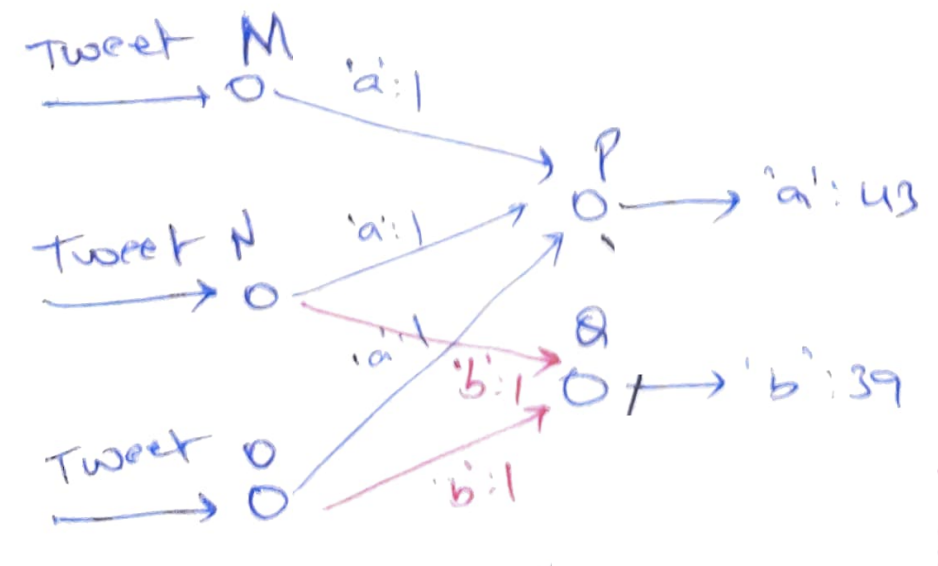 Tweet M
'a':1
P
'a': 43
Tweet N
'a':1
'a' 1
Q
'b':1
'b': 39
Tweet O
'b':1